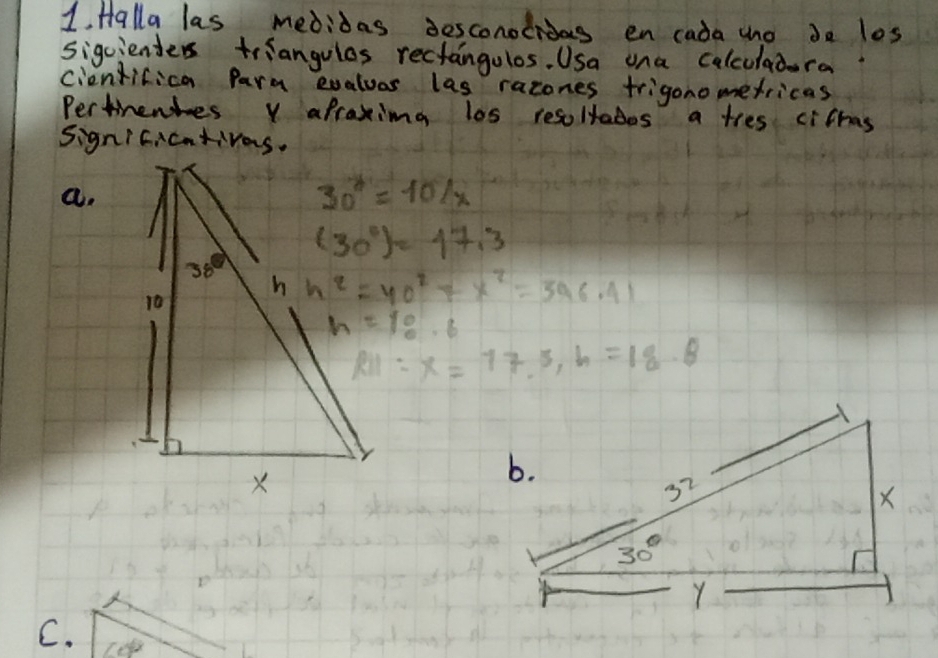 1. Halla las medidas desconocidas en cada uno de los
siguientes triangulos rectángulos. Usa una calculadora
cientifica Para evaluas las razones trigonometricas
Pertinentes y afraxima los resultados a tres cifras
significativas.
a.
30° = 10/x
(30°) = 17.3
38°
10
h
h² = 40² + x² = 396.41
h = 18.8
RII = x = 17.3, h = 18.8
x
b.
32
x
30°
y
c.